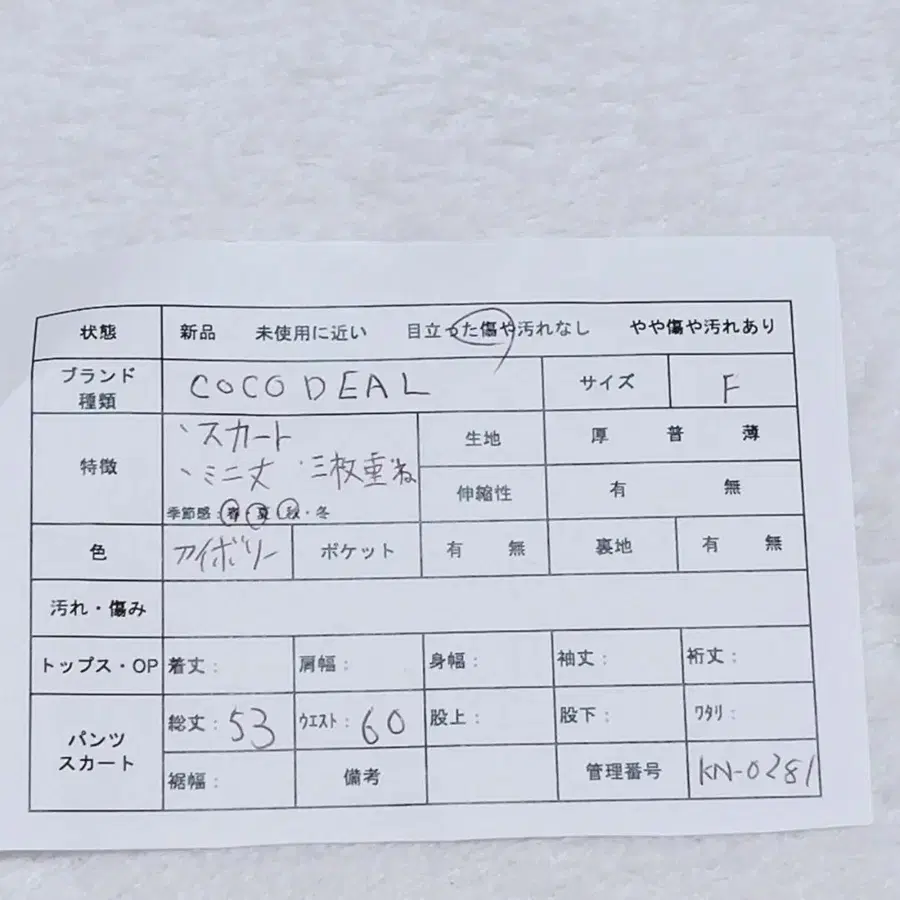 状態 新品 未使用に近い 目立った傷や汚れなし やや傷や汚れあり
ブランド 種類 COCO DEAL サイズ F
特徴 、スカート 生地 厚 普 薄
、ミニ丈 、三枚重ね 伸縮性 有 無
季節感:春・夏・秋・冬
色 アイボリー ポケット 有 無 裏地 有 無
汚れ・傷み
トップス・OP 着丈: 肩幅: 身幅: 袖丈: 裄丈:
パンツ スカート 総丈:53 ウエスト:60 股上: 股下: ワタリ:
裾幅: 備考 管理番号 KN-0281